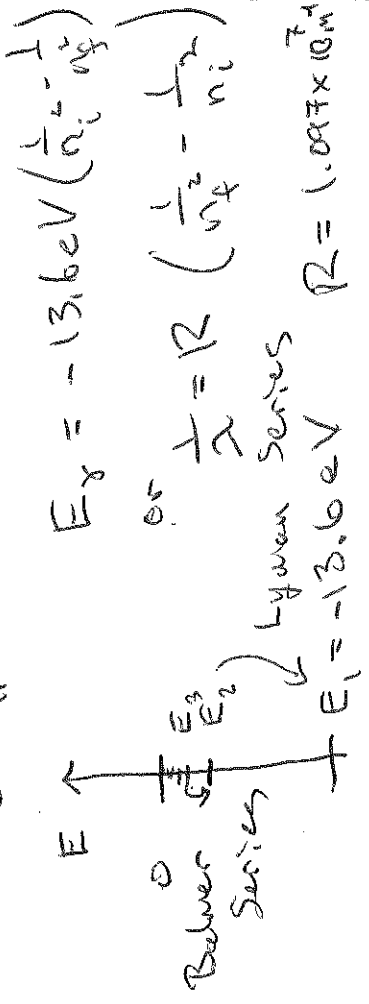 E_γ = -13.6 eV (1/n_i² - 1/n_f²)
or 1/λ = R (1/n_f² - 1/n_i²)
R = 1.097 × 10⁷ m⁻¹
E
0
E₃
E₂
Balmer
Series
Lyman Series
E₁ = -13.6 eV